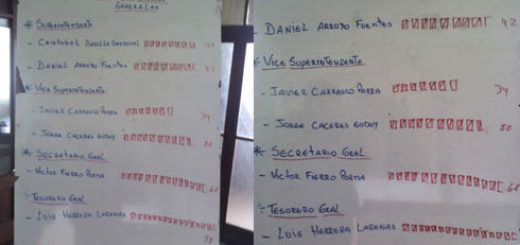 GENERALES
* SUPERINTENDENTE
- CRISTOBAL
- DANIEL ARROYO FUENTES 42
* VICE SUPERINTENDENTE
- JAVIER CARRASCO PARRA 34
- JORGE CACERES GODOY 50
* SECRETARIO GRAL
- VICTOR FIERRO
- TESORERO GRAL
- LUIS HERRERA LARENAS
- DANIEL ARROYO FUENTES 42
* VICE SUPERINTENDENTE
- JAVIER CARRASCO PARRA 34
- JORGE CACERES GODOY 50
* SECRETARIO GRAL
- VICTOR FIERRO
- TESORERO GRAL
- LUIS HERRERA LARENAS